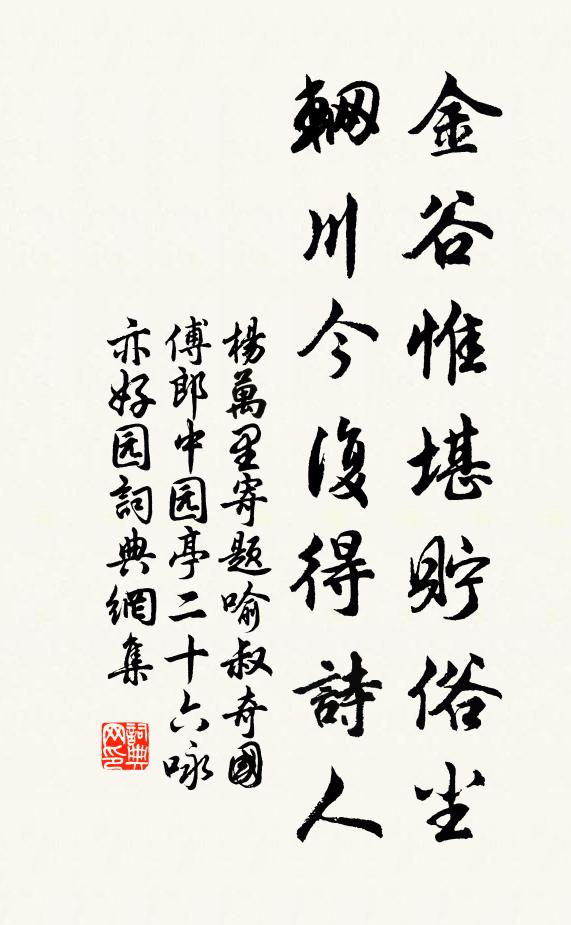 金谷惟堪貯俗尘
輞川今復得詩人
楊萬里寄題喻叔奇國
傅郎中园亭二十六咏
亦好园詞典網集
詞典网印